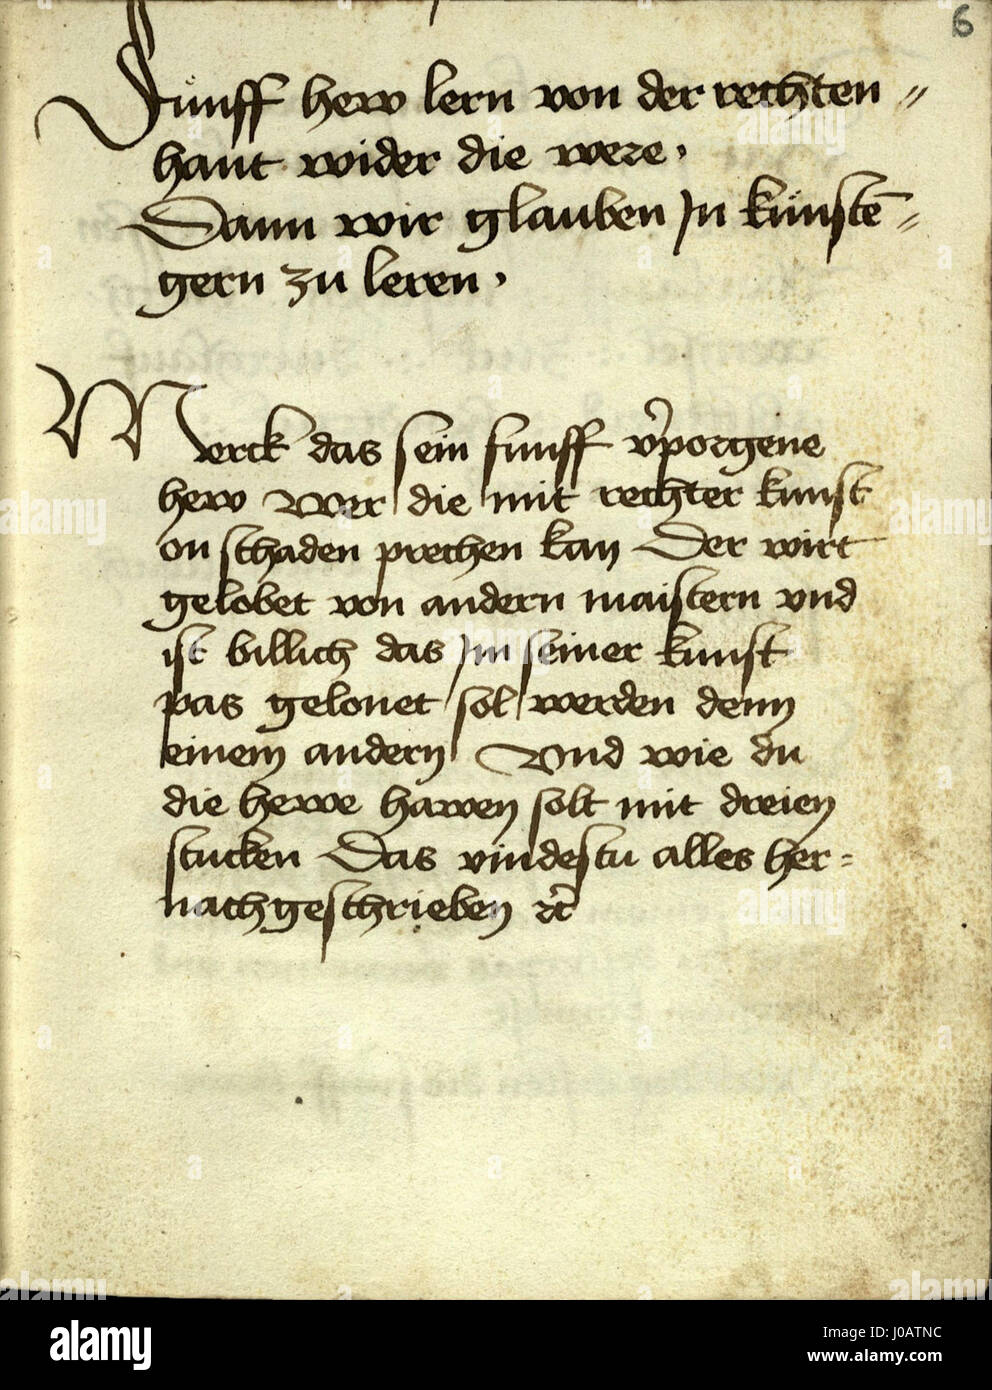 6
Fünff hew lern von der rechten〃
hant wider die were·
Dann wir glauben Jn künstē〃
gern zu leren·
Merck das sein funff v̓porgene
hew Wer die mit rechter kunst
on schaden prechen kan Der wirt
gelobet von andern maistern vnd
ist billich das Jm seiner kunst
pas gelonet sol werden denn
einem andern Vnd wie du
die hewe hawen solt mit dreien
stucken Das vindestu alles her=
nachgeschrieben ⁊c̓
alamy
Image ID: J0ATNC
www.alamy.com